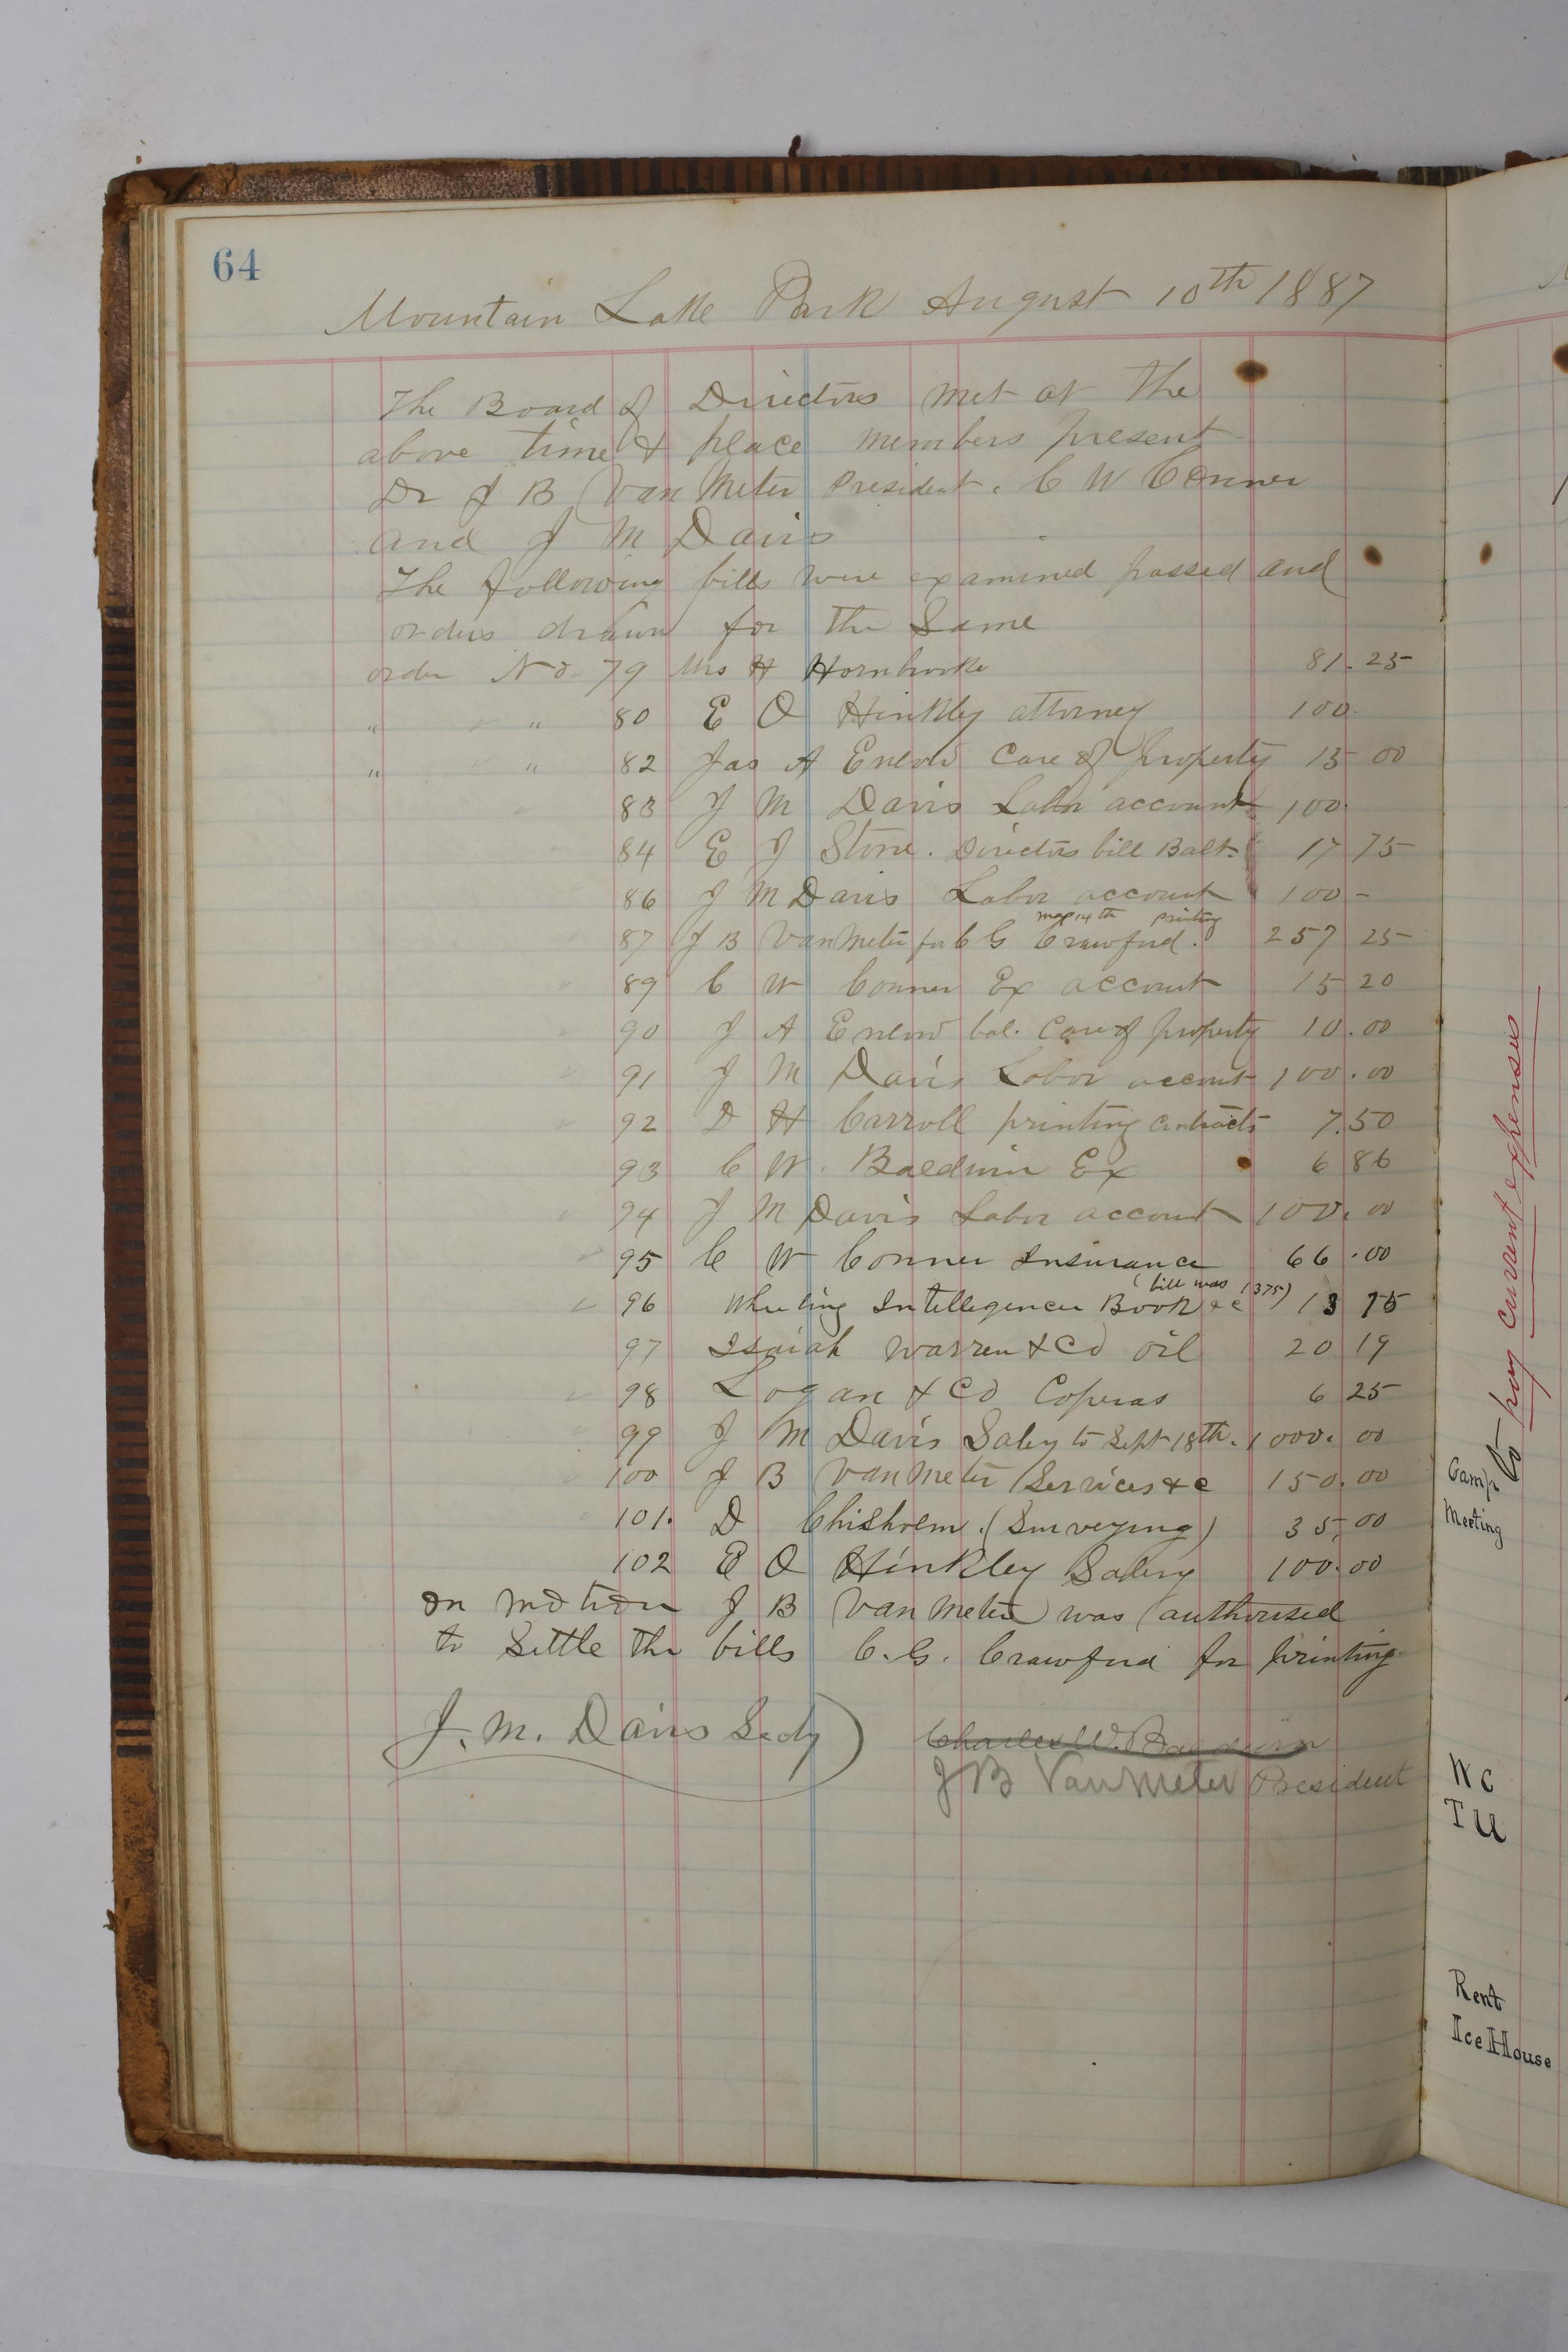 64
Mountain Lake Park August 10th 1887
The Board of Directors met at the
above time & place members present
Dr J B Van Meter President. C W Conner
and J M Davis
The following bills were examined passed and
orders drawn for the Same
order No. 79 Mrs H Hornbrooke 81.25
" " 80 E O Hinkley attorney 100.
" " 82 Jas A Enlow Care of property 15 00
83 J M Davis Labor account 100.
84 E J Stone. Directors bill Balt. 17 75
86 J M Davis Labor account 100 -
map 14th printing
87 J B Van Meter for C G Crawford. 257 25
89 C W Conner Ex account 15 20
90 J A Enlow bal. Care of property 10.00
91 J M Davis Labor account 100.00
92 D H Carroll printing contracts 7.50
93 C W. Baldwin Ex 6 86
94 J M Davis Labor account 100.00
95 C W Conner Insurance 66.00
(bill was 1375)
96 Wheeling Intellegencer Book &c 13 75
97 Isaiah Warren & Co oil 20 19
98 Logan & Co Coperas 6 25
99 J M Davis Salry to Sept 18th. 1000.00
100 J B Van Meter Services &c 150.00
101. D Chisholm. (Surveying) 35.00
102 E O Hinkley Salery 100.00
on motion J B Van Meter was authorised
to Settle the bills C. G. Crawford for printing
J. M. Davis Secty) Charles W. Baldwin
J B Van Meter President
to pay current expenses
Camp
Meeting
W C
T U
Rent
Ice House